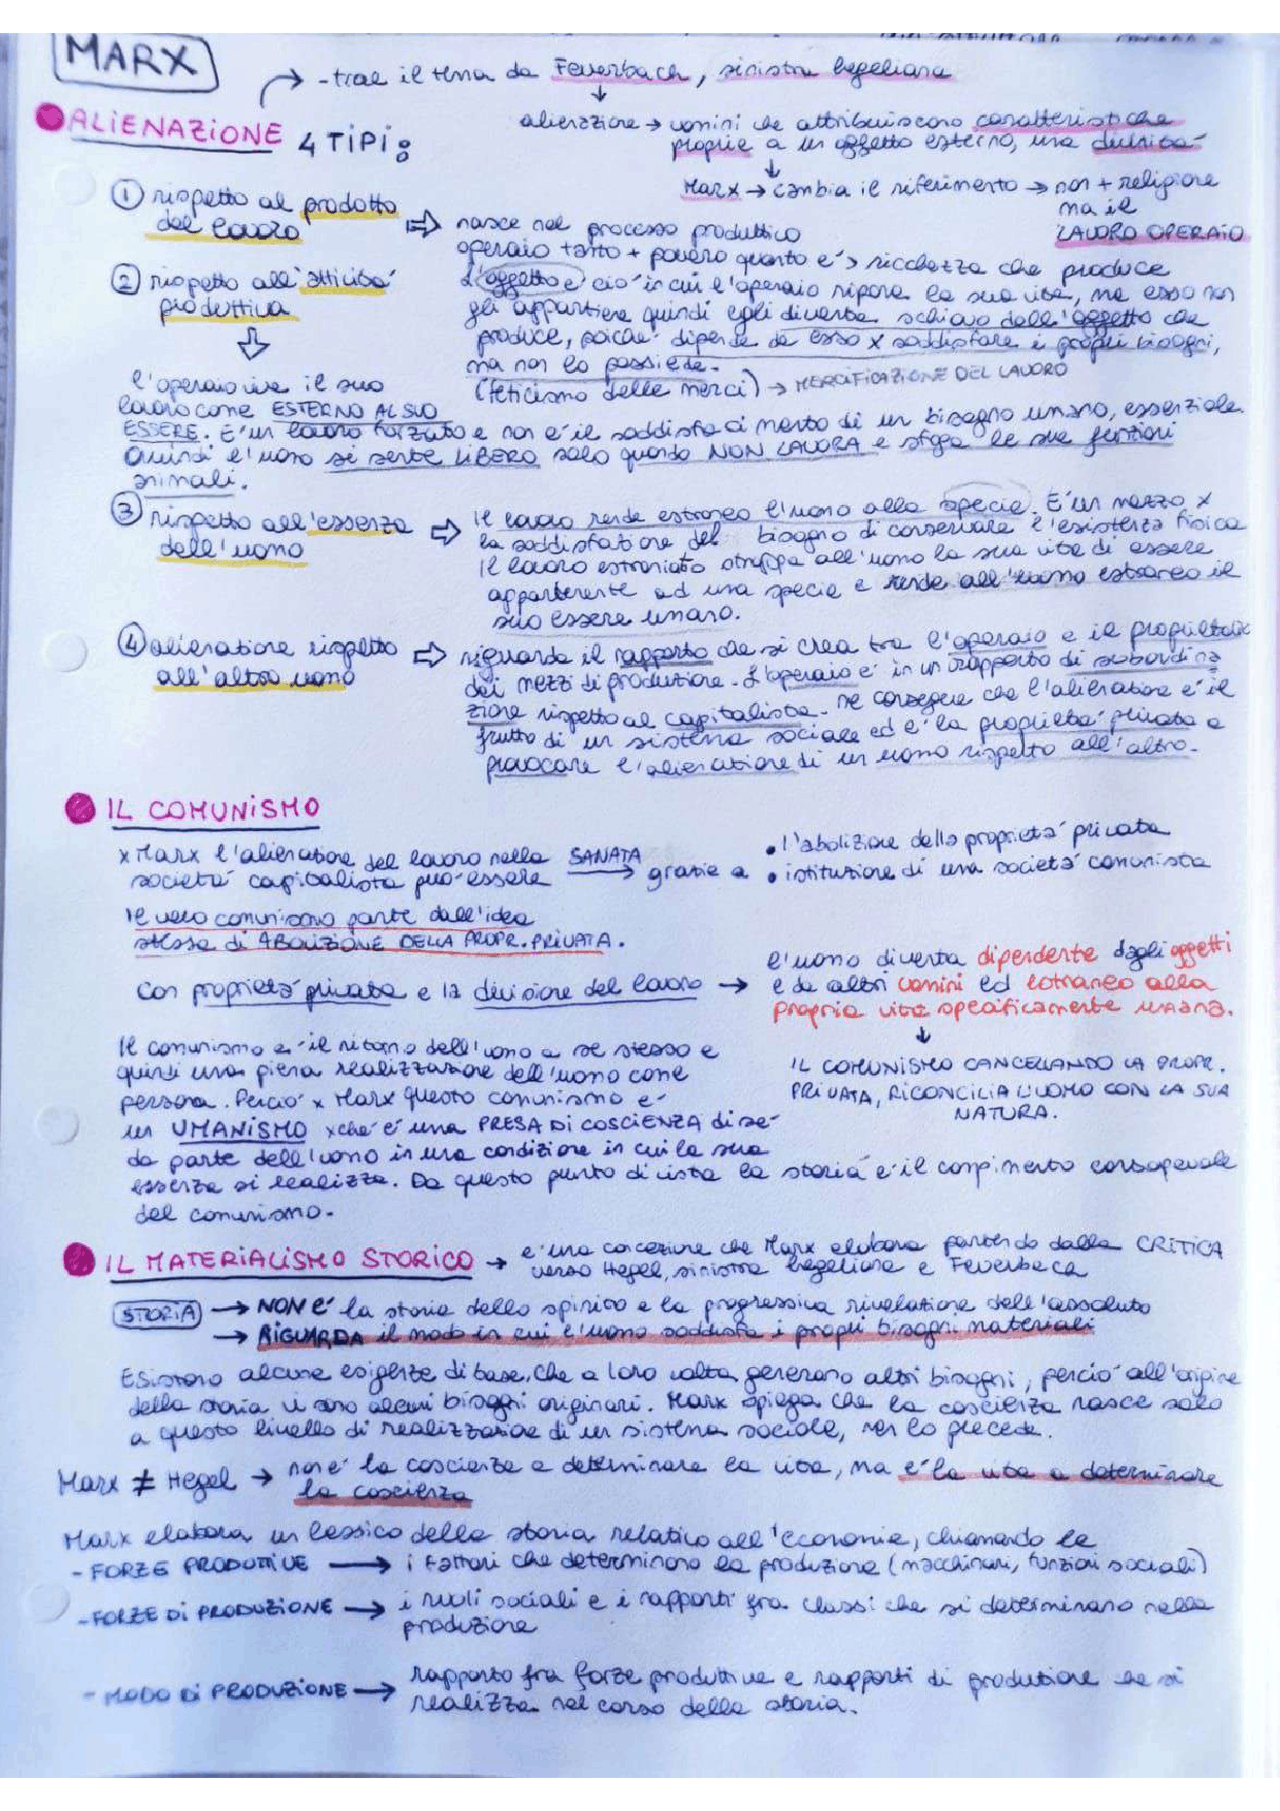 MARX
- trae il tema da Feuerbach, sinistra hegeliana
● ALIENAZIONE 4 TIPI:
alienazione → uomini che attribuiscono caratteristiche
proprie a un oggetto esterno, una divinità
Marx → cambia il riferimento → non + religione
ma il
LAVORO OPERAIO
① rispetto al prodotto
del lavoro
⇒ nasce nel processo produttivo
operaio tanto + povero quanto è > ricchezza che produce
L'oggetto è ciò in cui l'operaio ripone la sua vita, ma esso non
gli appartiene quindi egli diventa schiavo dell'oggetto che
produce, poiché dipende da esso x soddisfare i propri bisogni,
ma non lo possiede.
(feticismo delle merci) → MERCIFICAZIONE DEL LAVORO
② rispetto all'attività
produttiva
l'operaio vive il suo
lavoro come ESTERNO AL SUO
ESSERE. È un lavoro forzato e non è il soddisfacimento di un bisogno umano, essenziale.
Quindi l'uomo si sente LIBERO solo quando NON LAVORA e sfoga le sue funzioni
animali.
③ rispetto all'essenza
dell'uomo
⇒ il lavoro rende estraneo l'uomo alla specie. È un mezzo x
la soddisfazione del bisogno di conservare l'esistenza fisica
Il lavoro estraniato strappa all'uomo la sua vita di essere
appartenente ad una specie e rende all'uomo estraneo il
suo essere umano.
④ alienazione rispetto
all'altro uomo
⇒ riguarda il rapporto che si crea tra l'operaio e il proprietario
dei mezzi di produzione. L'operaio è in un rapporto di subordina
zione rispetto al capitalista. Ne consegue che l'alienazione è il
frutto di un sistema sociale ed è la proprietà privata a
provocare l'alienazione di un uomo rispetto all'altro.
● IL COMUNISMO
x Marx l'alienazione del lavoro nella SANATA
società capitalista può essere → grazie a
• l'abolizione della proprietà privata
• istituzione di una società comunista
Il vero comunismo parte dall'idea
stessa di ABOLIZIONE DELLA PROPR. PRIVATA.
Con proprietà privata e la divisione del lavoro →
l'uomo diventa dipendente dagli oggetti
e da altri uomini ed estraneo alla
propria vita specificamente umana.
IL COMUNISMO CANCELLANDO LA PROPR.
PRIVATA, RICONCILIA L'UOMO CON LA SUA
NATURA.
Il comunismo è il ritorno dell'uomo a se stesso e
quindi una piena realizzazione dell'uomo come
persona. Perciò x Marx questo comunismo è
un UMANISMO xché è una PRESA DI COSCIENZA di sé
da parte dell'uomo in una condizione in cui la sua
essenza si realizza. Da questo punto di vista la storia è il compimento consapevole
del comunismo.
● IL MATERIALISMO STORICO → è una concezione che Marx elabora partendo dalla CRITICA
verso Hegel, sinistra hegeliana e Feuerbach
STORIA → NON È la storia dello spirito e la progressiva rivelazione dell'assoluto
→ RIGUARDA il modo in cui l'uomo soddisfa i propri bisogni materiali
Esistono alcune esigenze di base, che a loro volta generano altri bisogni, perciò all'origine
della storia vi sono alcuni bisogni originari. Marx spiega che la coscienza nasce solo
a questo livello di realizzazione di un sistema sociale, non lo precede.
Marx ≠ Hegel → non è la coscienza a determinare la vita, ma è la vita a determinare
la coscienza
Marx elabora un lessico della storia relativo all'economia, chiamando le
- FORZE PRODUTTIVE → i fattori che determinano la produzione (macchinari, funzioni sociali)
- FORZE DI PRODUZIONE → i ruoli sociali e i rapporti fra classi che si determinano nella
produzione
- MODO DI PRODUZIONE → rapporto fra forze produttive e rapporti di produzione che si
realizza nel corso della storia.